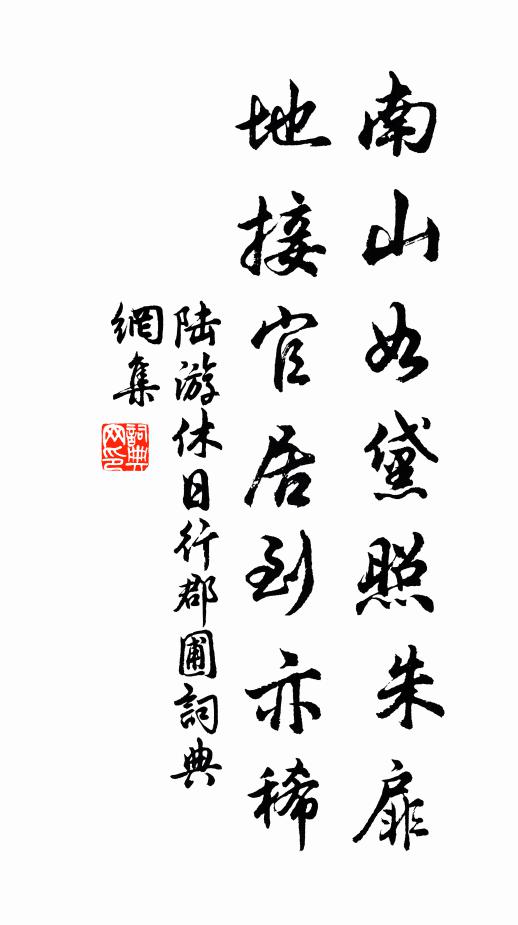 南山如黛照朱扉
地接官居到亦稀
陆游休日行郡圃詞典
網集
詞典
网印